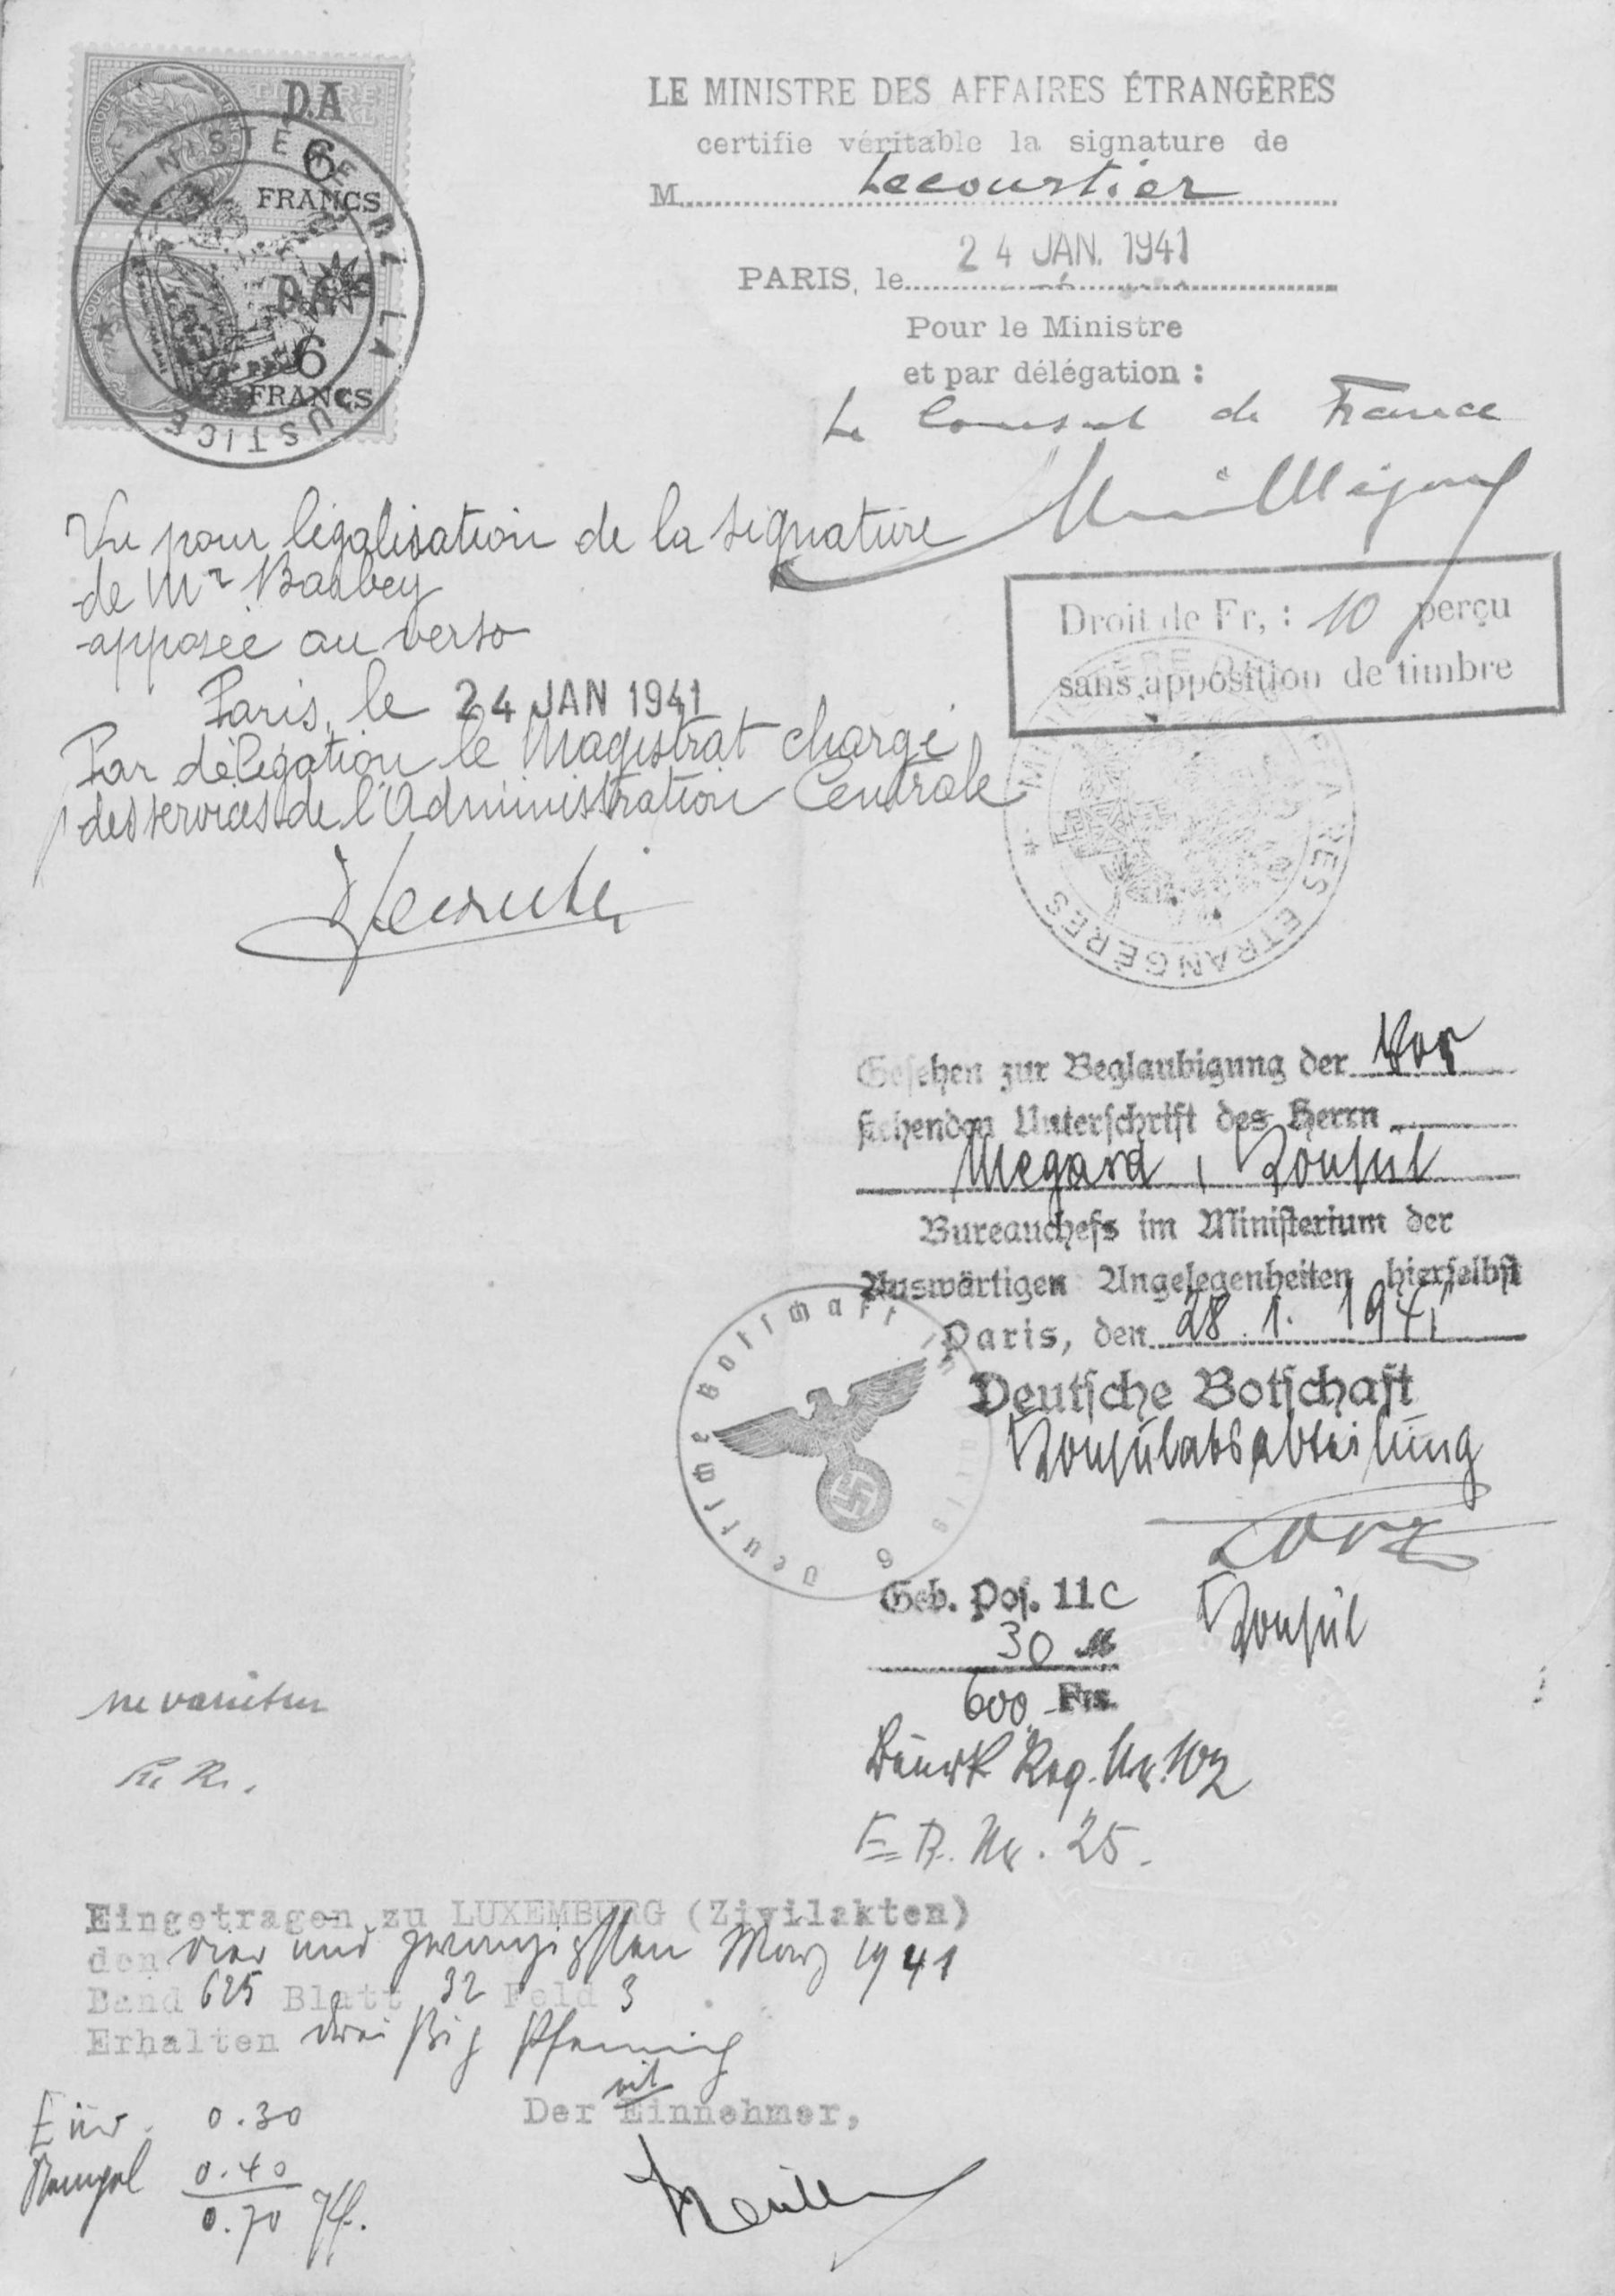 D.A
6
FRANCS
D.A
6
FRANCS
MINISTERE DE LA JUSTICE
LE MINISTRE DES AFFAIRES ÉTRANGÈRES
certifie véritable la signature de
M. Lecourtier
24 JAN. 1941
PARIS, le
Pour le Ministre
et par délégation :
Le Consul de France
Vu pour légalisation de la signature
de Mr Barbey
apposée au verso
Paris, le 24 JAN 1941
Par délégation le Magistrat chargé
des services de l'Administration Centrale
Droit de Fr, : 10 perçu
sans apposition de timbre
MINISTERE DES AFFAIRES ETRANGÈRES
Gesehen zur Beglaubigung der vor
stehenden Unterschrift des Herrn
Megard, Konsul
Bureauchefs im Ministerium der
Auswärtigen Angelegenheiten hierselbst
Paris, den 28. 1. 1941
Deutsche Botschaft
Konsulatsabteilung
Deutsche Botschaft in Paris
6
Geb. Pos. 11c
Konsul
30 M
600,- Frs.
Beurk. Reg. Nr. 102
E. R. Nr. 25.
ne varietur
Eingetragen zu LUXEMBURG (Zivilakten)
den vier und zwanzigsten März 1941
Band 625 Blatt 32 Feld 3
Erhalten dreißig Pfennig
Der Einnehmer,
Einr. 0.30
Stempel 0.40
0.70 Pf.